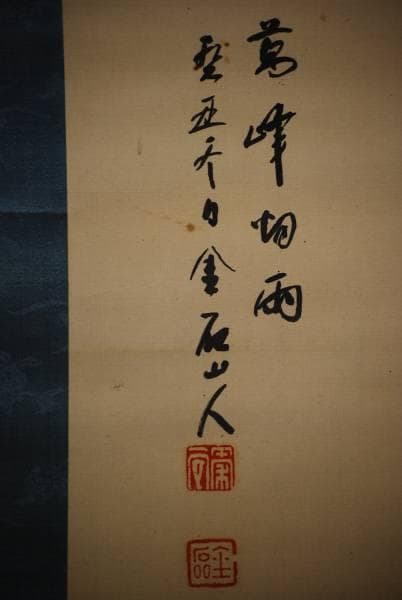 萬峰烟雨
癸丑春日金石山人